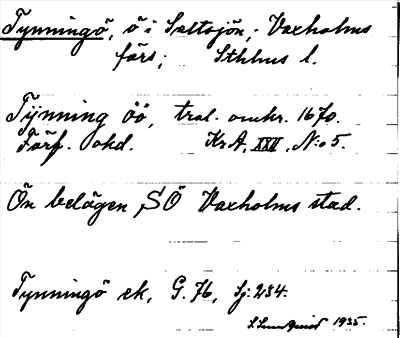 Tynningö, ö i Saltsjön, Vaxholms
förs; Sthlms l.
Tijnning öö, trol. omkr. 1670.
Förf. okd. KrA, XXII, N:o 5.
Ön belägen SÖ Vaxholms stad.
Tynningö ek, G. 76, Sj: 234.
S. Lundquist 1935.